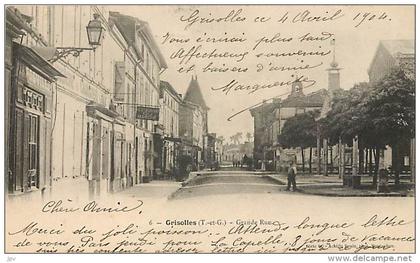 Grisolles ce 4 Avril 1904.
Vous écrirai plus tard.
Affectueux souvenir
et baisers d'amie
Marguerite
Chère Amie,
6 - Grisolles (T.-et-G.) - Grande Rue
Merci du joli poisson.. Attends longue lettre
de vous. Pars jeudi pour La Capelle, 8 jours de vacances